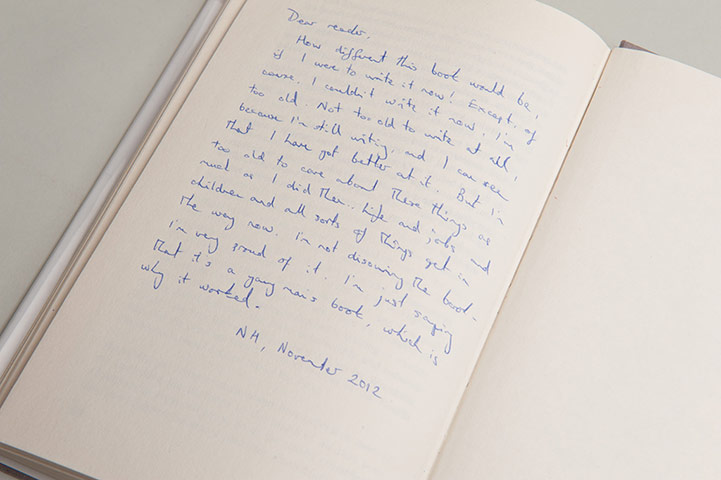 Dear reader,
How different this book would be,
if I were to write it now! Except, of
course, I couldn't write it now. I'm
too old. Not too old to write at all,
because I'm still writing, and I can seen
that I have got better at it. But I'm
too old to care about these things as
much as I did then. Life and jobs and
children and all sorts of things get in
the way now. I'm not disowning the book -
I'm very proud of it. I'm just saying
that it's a young man's book, which is
why it worked.
NH, November 2012